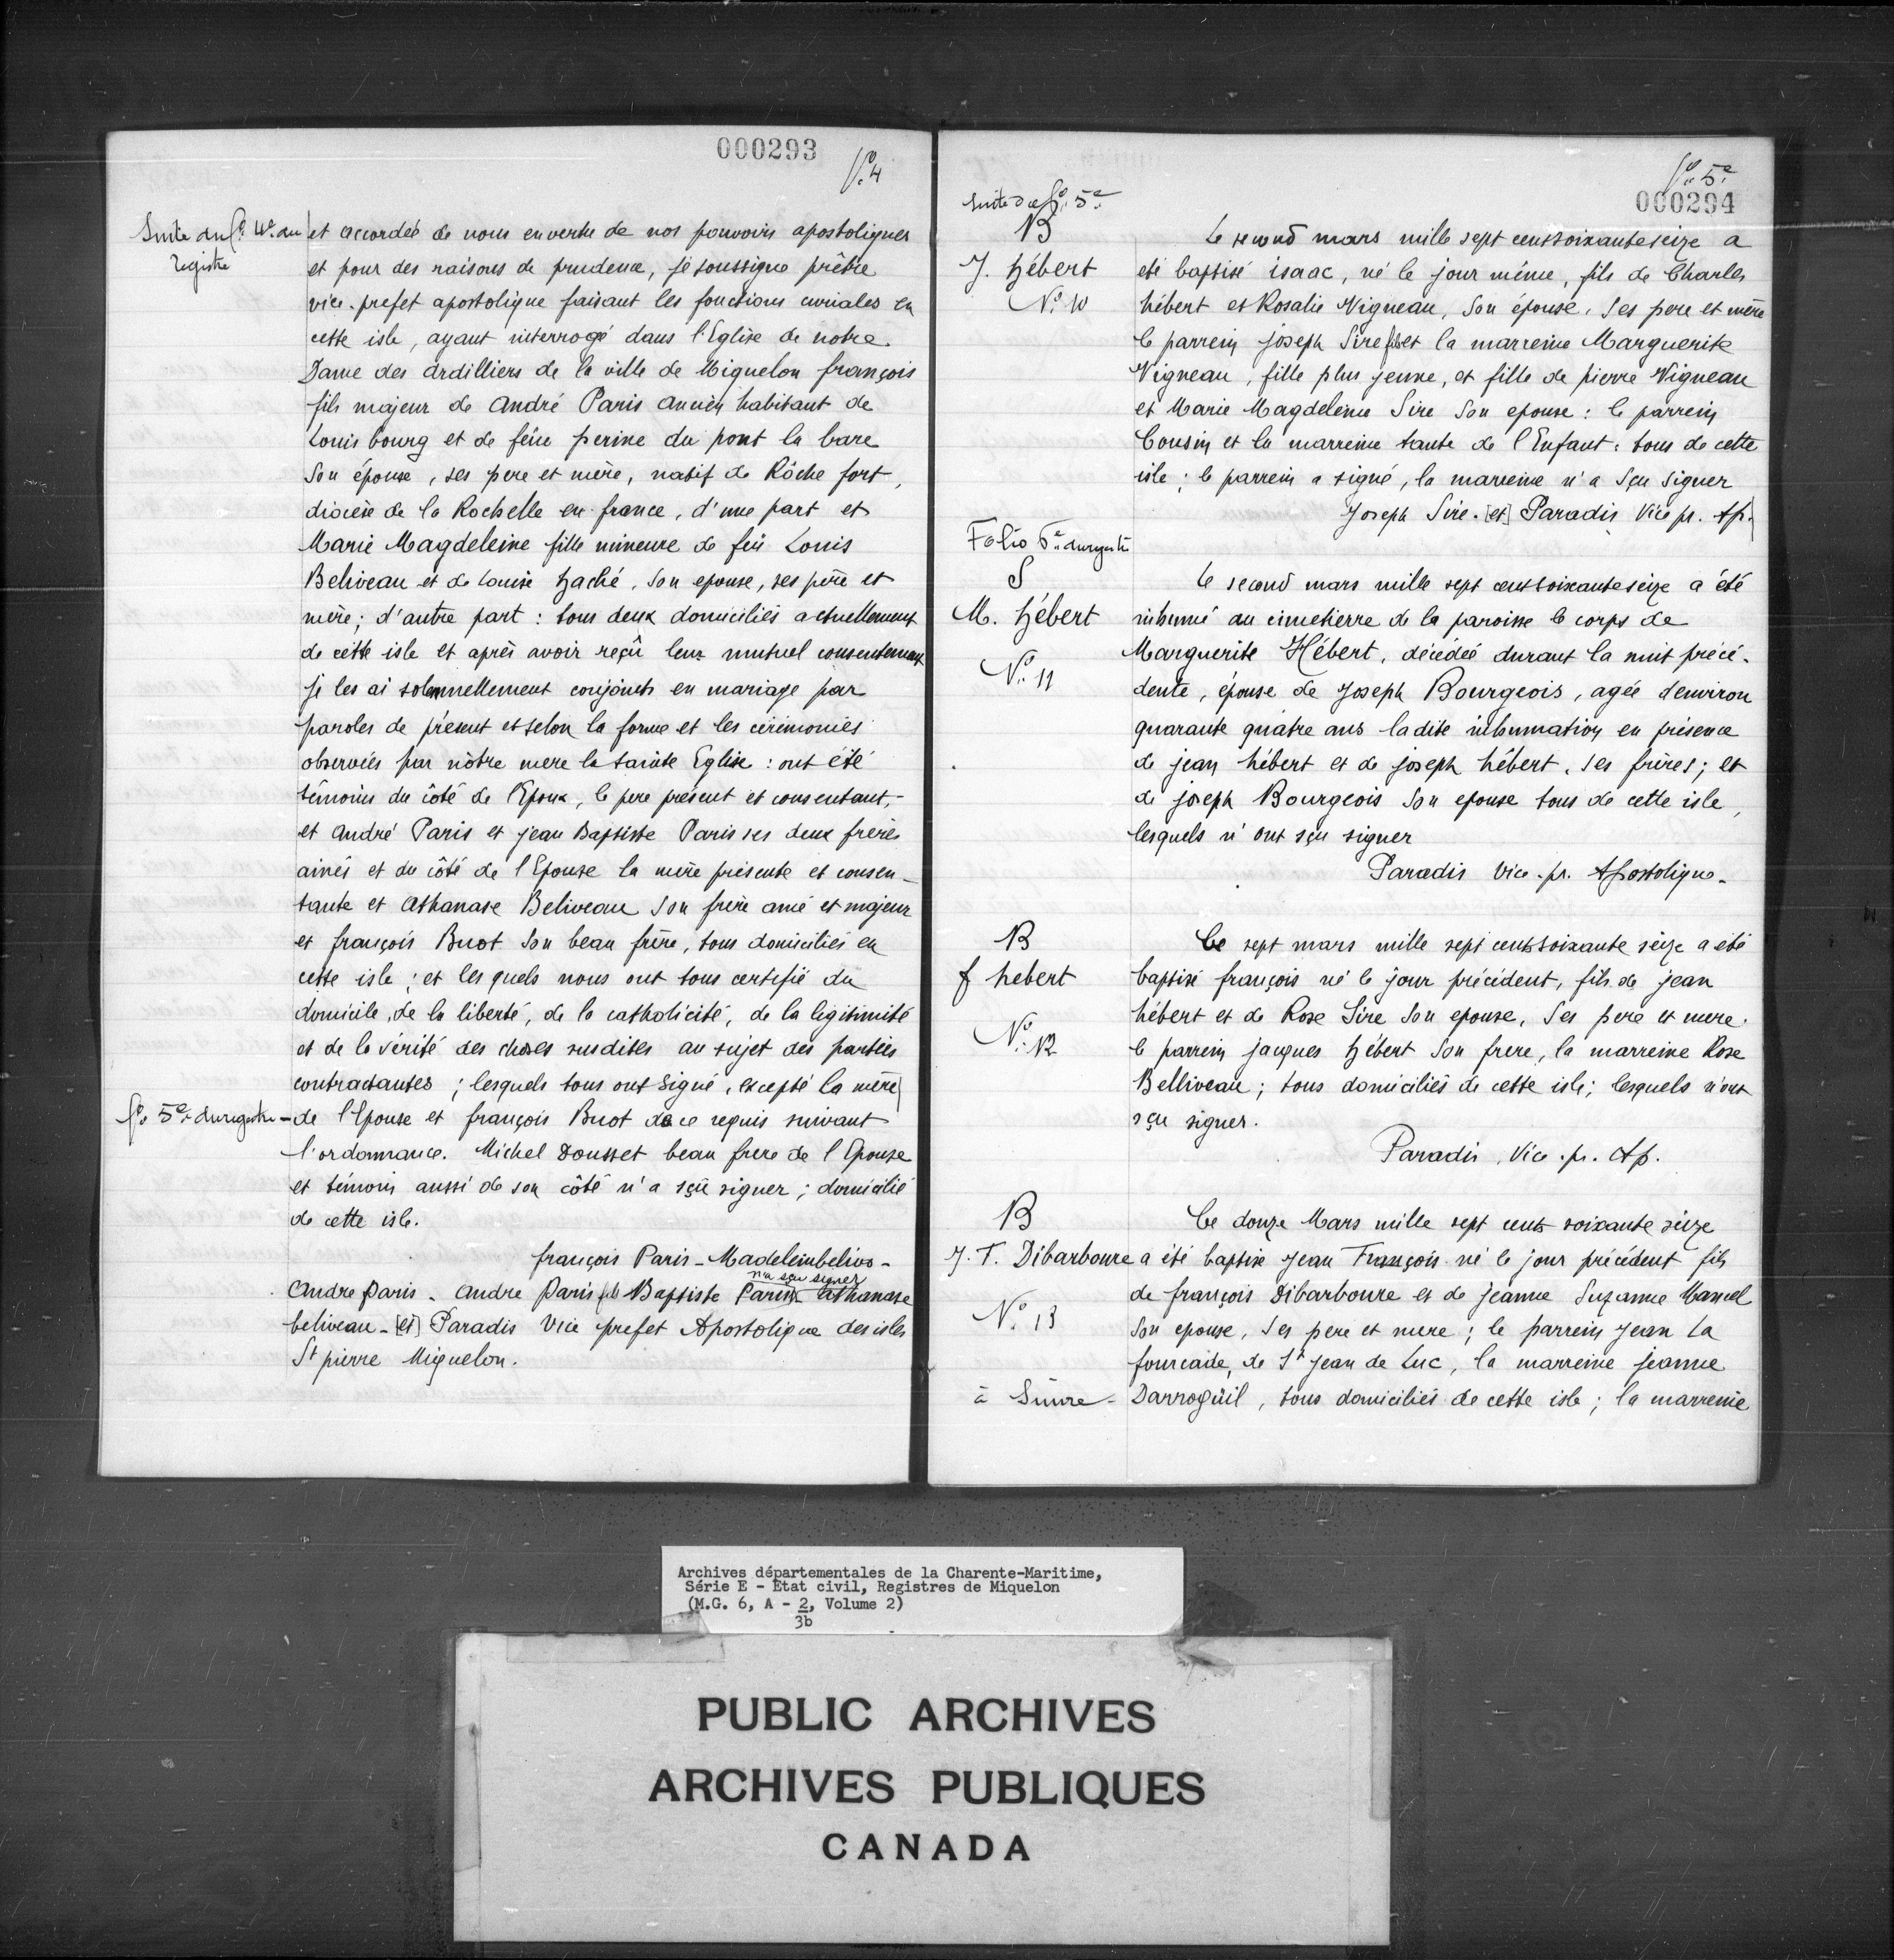 000293
fº 4
Suite du fº 4e du
registre
et accordés de nous en vertu de nos pouvoirs apostoliques
et pour des raisons de prudence, je soussigné prêtre
vice-prefet apostolique faisant les fonctions curiales en
cette isle, ayant interrogé dans l'Eglise de notre
Dame des ardilliers de la ville de Miquelon françois
fils majeur de andré Paris ancien habitant de
Louis bourg et de feüe perine du pont la bare
Son épouse, ses pere et mère, natif de Rôche fort,
diocèse de la Rochelle en france, d'une part et
Marie Magdeleine fille mineure de feü Louis
Beliveau et de Louise haché, Son epouse, ses père et
mère; d'autre part : tous deux domiciliés actuellement
de cette isle et après avoir reçû leur mutuel consentement
je les ai solemnellement conjoints en mariage par
paroles de présent et selon la forme et les cérémonies
observées par nôtre mere la sainte Eglise : ont été
témoins du côté de l'Epoux, le pere présent et consentant,
et andré Paris et jean Baptiste Paris ses deux frères
ainés et du côté de l'Epouse la mère présente et consen-
tante et athanase Beliveau Son frère ainé et majeur
et françois Buot Son beau frère, tous domiciliés en
cette isle ; et les quels nous ont tous certifié du
domicile, de la liberté, de la catholicité, de la legitimité
et de la vérité des choses susdites au sujet des parties
contractantes ; lesquels tous ont signé, excepté la mère
fº 5e du registre - de l'Epouse et françois Buot de ce requis suivant
l'ordonnance. Michel Dousset beau frere de l'Epouse
et témoin aussi de son côté n'a sçû signer ; domicilié
de cette isle.
françois Paris - Madeleinbelivo -
n'a sçu signer
Andre paris - andre paris fils Baptiste Paris - athanase
beliveau - [et] Paradis Vice prefet Apostolique des isles
St pierre Miquelon.
fº 5e
000294
Suite du fº 5e
B
J. hébert
Nº 10
Le second mars mille sept cent soixante seize a
eté baptisé isaac, né le jour même, fils de Charles
hébert et Rosalie Vigneau, Son épouse, Ses pere et mère
le parrein joseph Sire fils et la marreine Marguerite
Vigneau, fille plus jeune, et fille de pierre Vigneau
et Marie Magdeleine Sire Son epouse : le parrein
Cousin et la marreine tante de l'Enfant : tous de cette
isle ; le parrein a signé, la marreine n'a sçu signer
Joseph Sire. [et] Paradis Vice pr. Ap.
Folio 6e du registre
S
M. hébert
Nº 11
Le second mars mille sept cent soixante seize a été
inhumé au cimetierre de la paroisse le corps de
Marguerite Hébert, décédée durant la nuit précé-
dente, épouse de Joseph Bourgeois, agée d'environ
quarante quatre ans la dite inhumation en présence
de jean hébert et de joseph hébert, ses frères ; et
de joseph Bourgeois Son epouse tous de cette isle,
lesquels n'ont sçu signer
Paradis Vice-pr. Apostolique-
B
f hebert
Nº 12
Le sept mars mille sept cent soixante seize a été
baptisé françois né le jour précédent, fils de jean
hébert et de Rose Sire Son epouse, Ses pere et mere.
le parrein jacques hébert Son frere, la marreine Rose
Belliveau ; tous domiciliés de cette isle ; lesquels n'ont
sçu signer.
Paradis, Vice-pr. Ap.
B
J. F. Dibarboure
Nº 13
Le douze Mars mille sept cent soixante seize
a été baptisé Jean François né le jour précédent fils
de françois Dibarboure et de jeanne Suzanne Mancel
Son epouse, Ses pere et mere ; le parrein Jean La
fourcade, de St Jean de Luc, la marreine jeanne
à Suivre - Darrogüil, tous domiciliés de cette isle ; la marreine
Archives départementales de la Charente-Maritime,
Série E - Etat civil, Registres de Miquelon
(M.G. 6, A - 2, Volume 2)
3b
PUBLIC ARCHIVES
ARCHIVES PUBLIQUES
CANADA